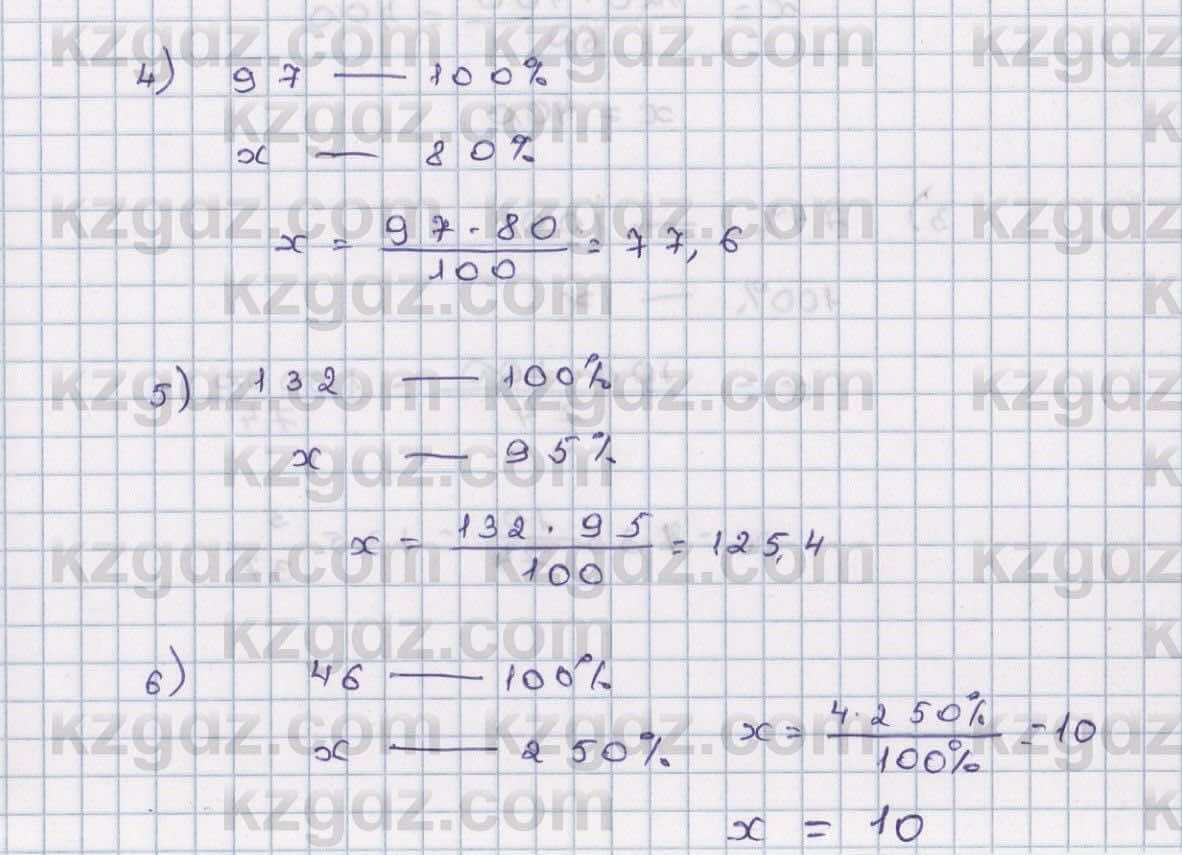 4) 97 — 100%
x — 80%
x = \frac{97 · 80}{100} = 77,6
5) 132 — 100%
x — 95%
x = \frac{132 · 95}{100} = 125,4
6) 46 — 100%
x — 250%
x = \frac{4 · 250%}{100%} = 10
x = 10
kzgdz.com